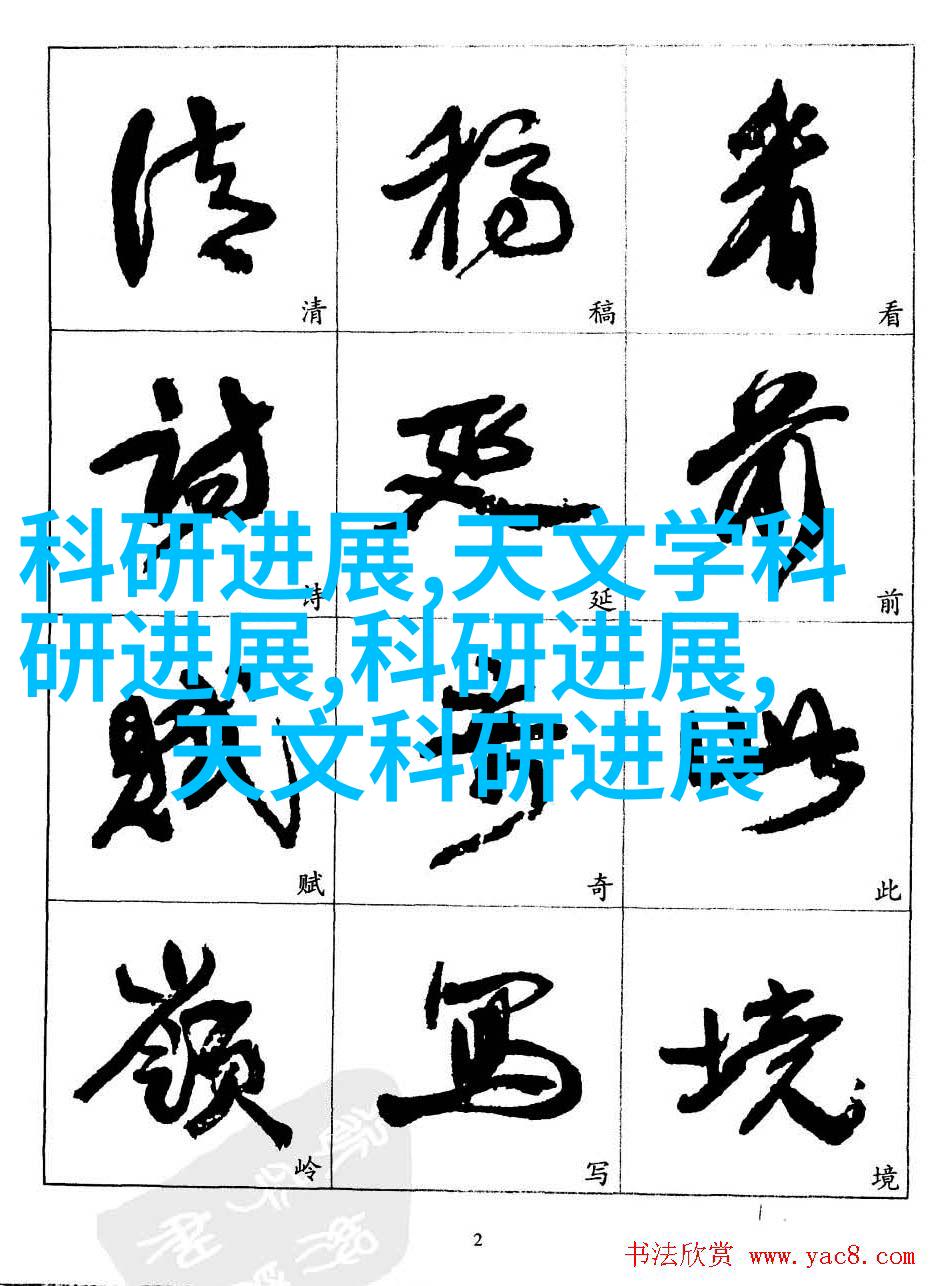 清 稿 看
诗 延 前
科研进展,天文学科
研进展,科研进展,
天文科研进展
赋 奇 此
岭 写 境
2
书法欣赏 www.yac8.com